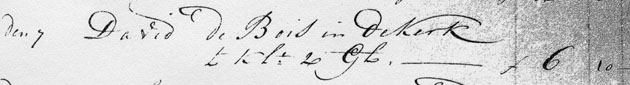 den 7 David de Bois in de Kerk
t K lt 2 Gl. — f 6 10 —